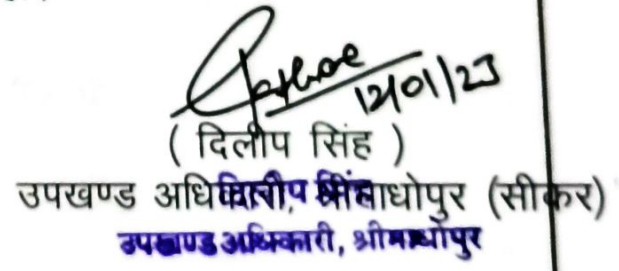 12/01/23
( दिलीप सिंह )
उपखण्ड अधिकारी, श्रीमाधोपुर (सीकर)
दिलीप सिंह
उपखण्ड अधिकारी, श्रीमाधोपुर